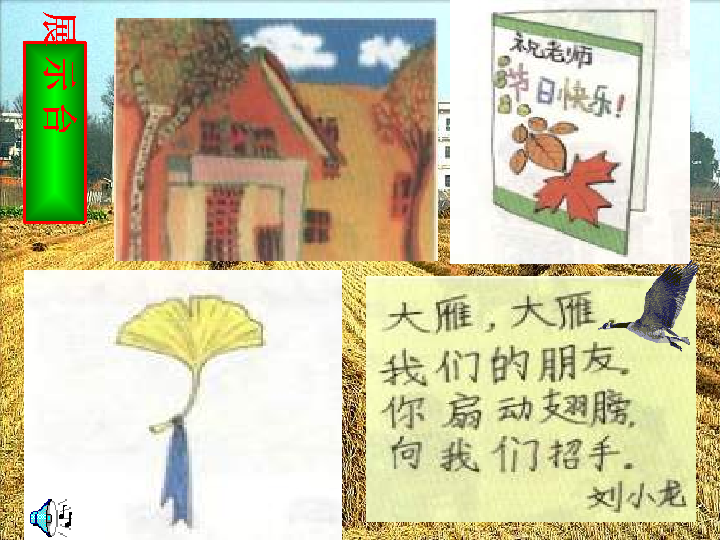 展示台
祝老师
节日快乐!
大雁,大雁,
我们的朋友。
你扇动翅膀,
向我们招手。
刘小龙